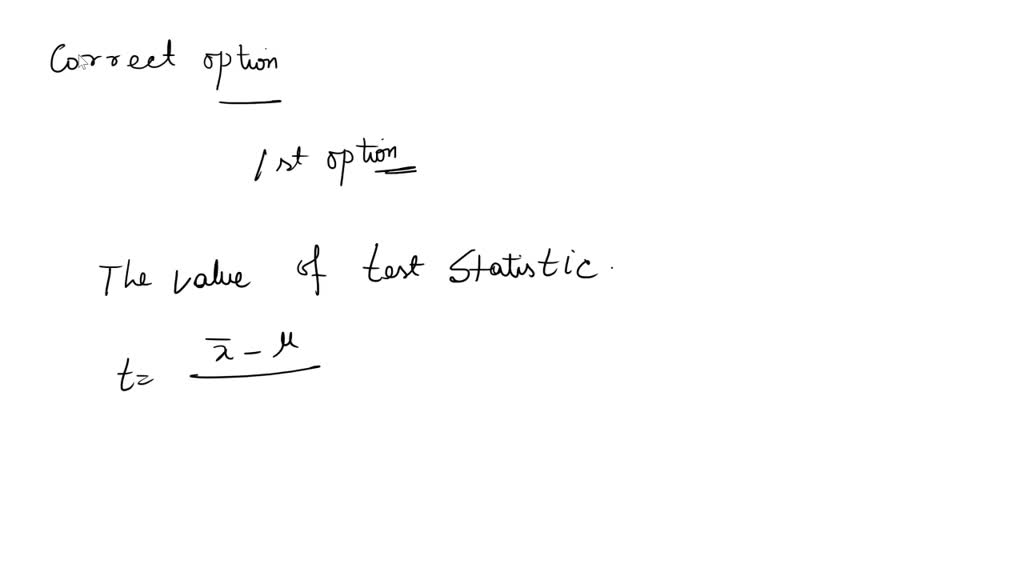 Correct option
1st option
The value of test Statistic.
t= x̄ - μ